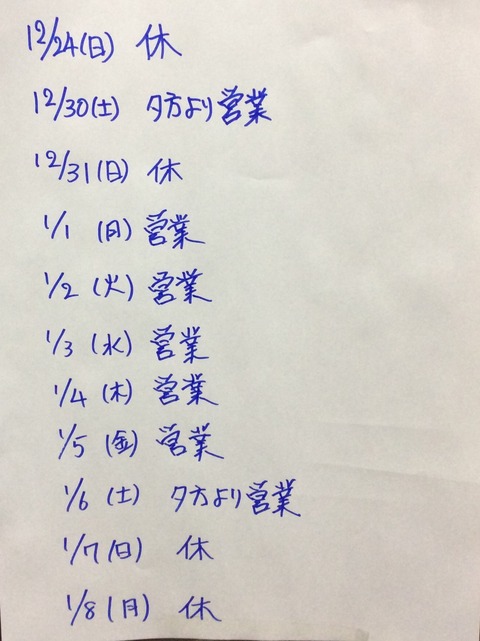 12/24(日) 休
12/30(土) 夕方より営業
12/31(日) 休
1/1 (月) 営業
1/2 (火) 営業
1/3 (水) 営業
1/4 (木) 営業
1/5 (金) 営業
1/6 (土) 夕方より営業
1/7(日) 休
1/8(月) 休